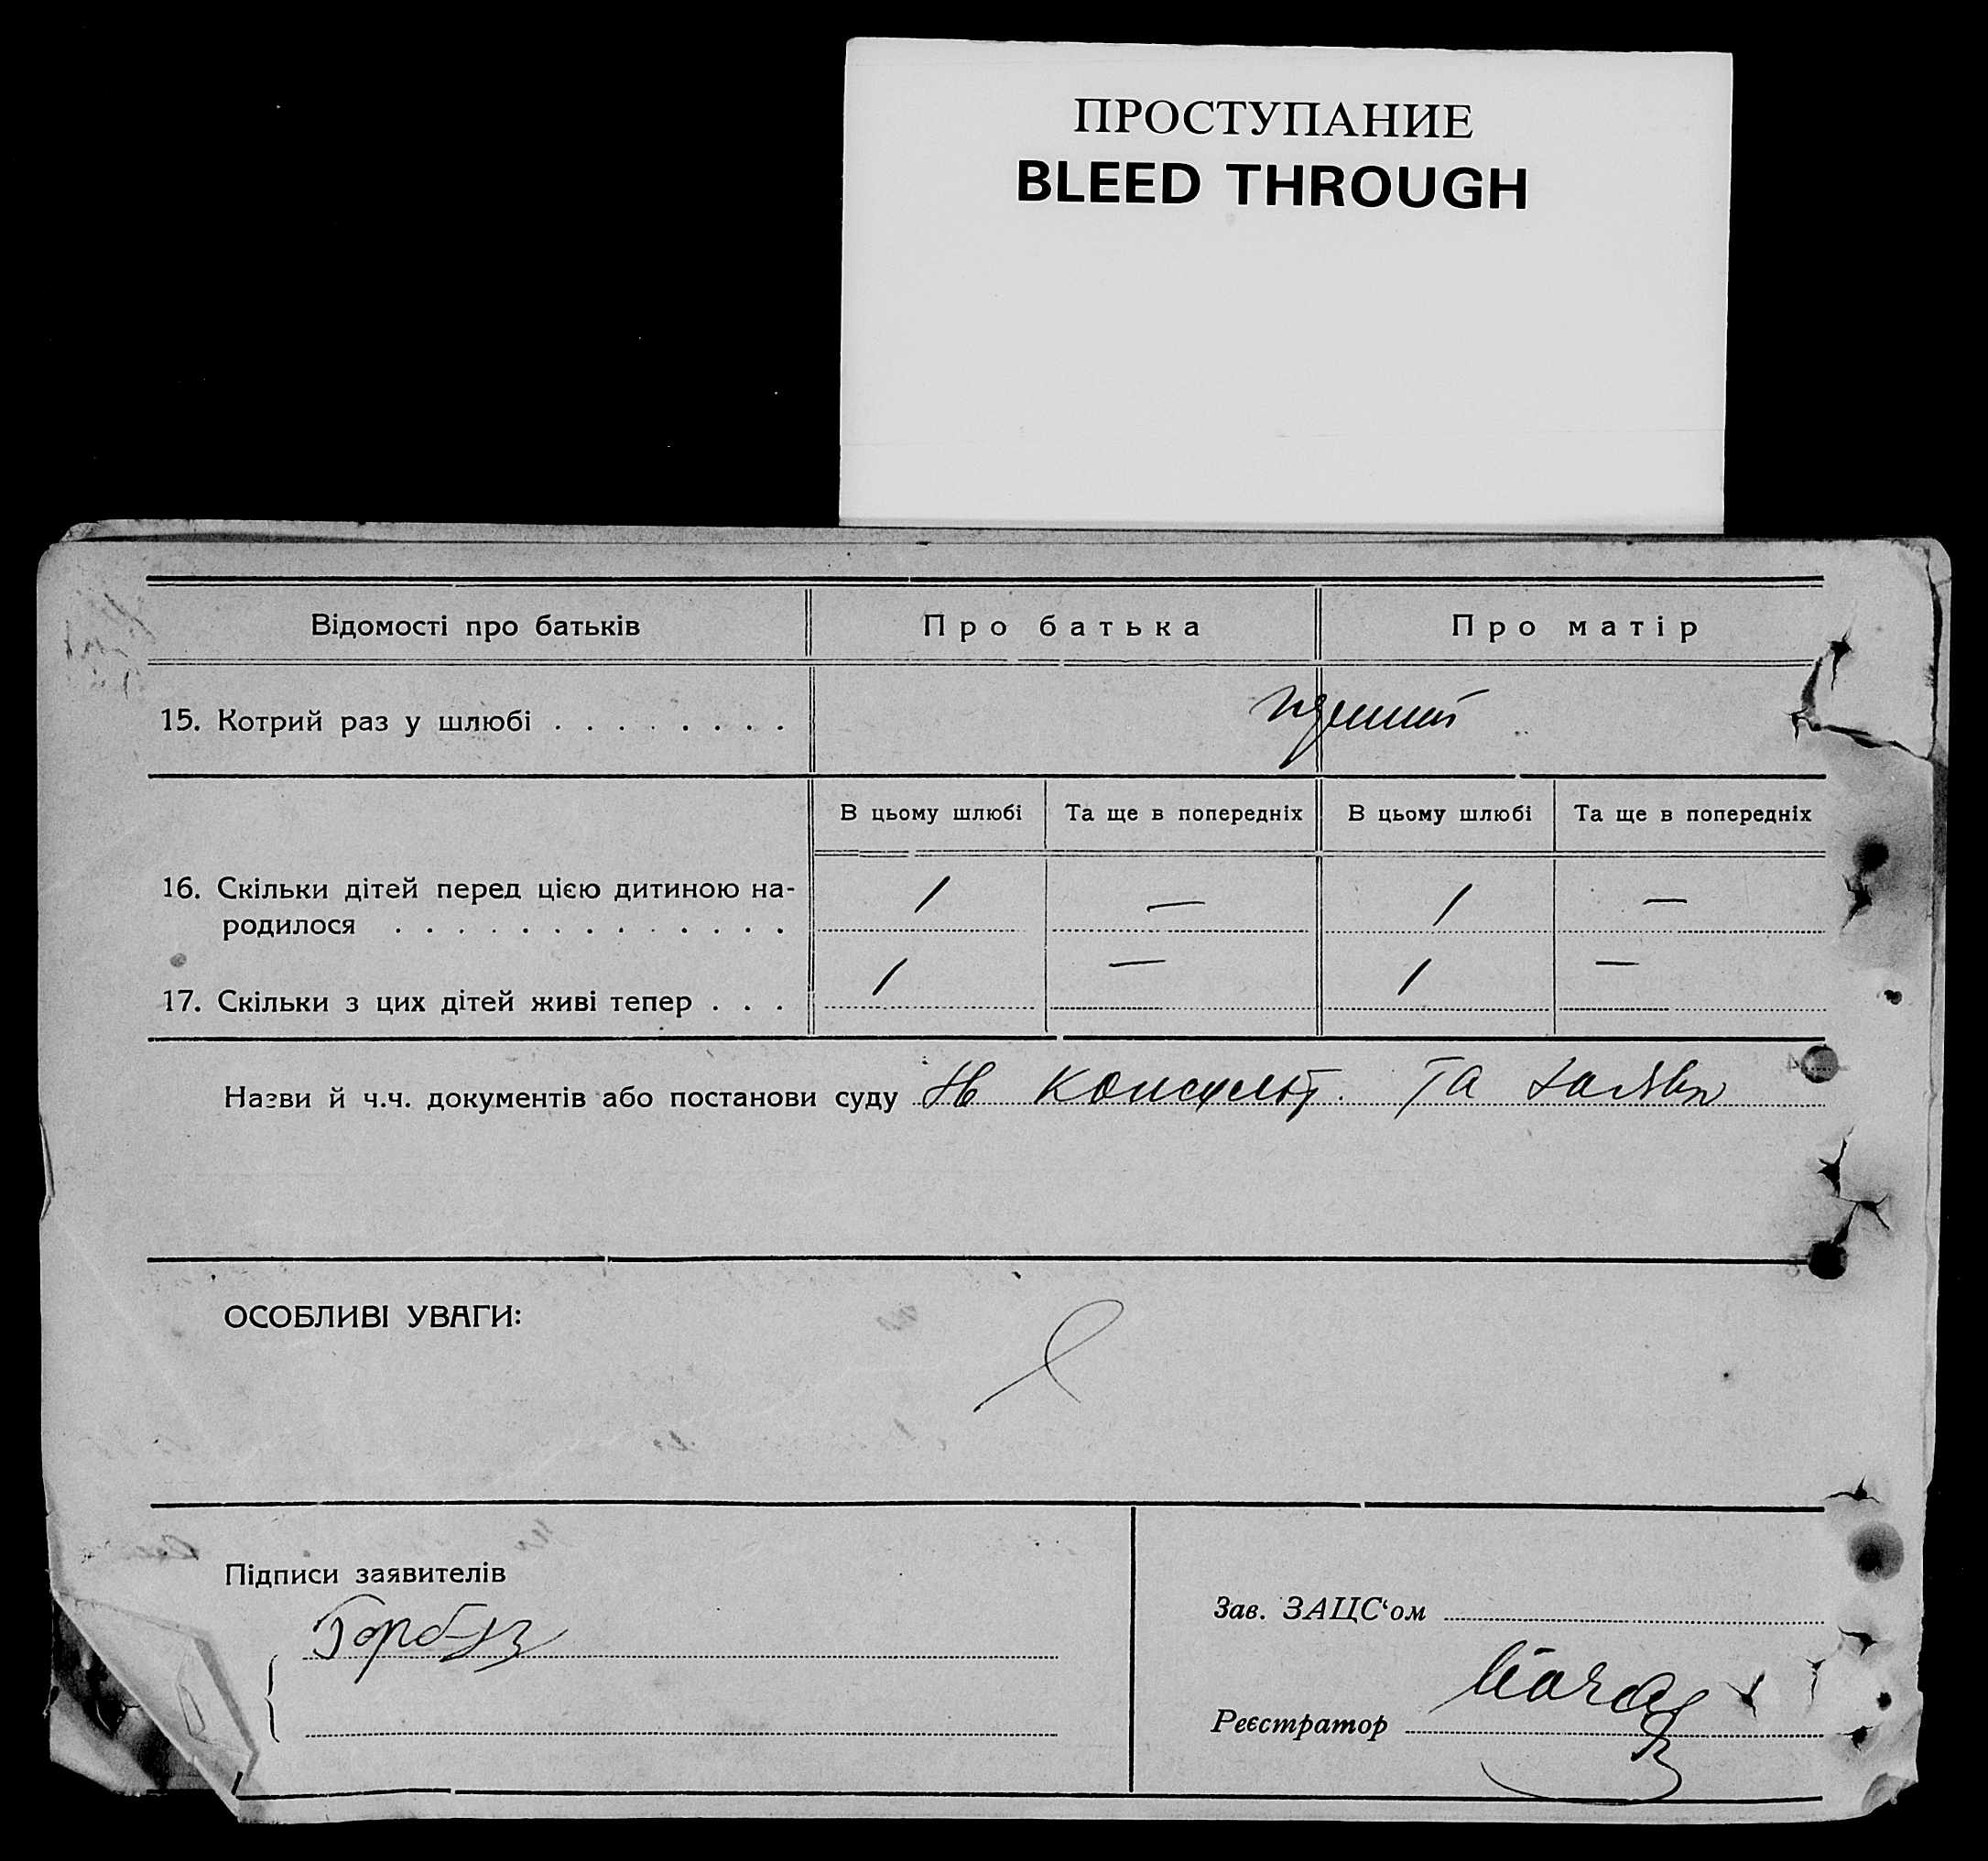 ПРОСТУПАНИЕ
BLEED THROUGH
Відомості про батьків Про батька Про матір
15. Котрий раз у шлюбі . . . . . . . .
В цьому шлюбі Та ще в попередніх В цьому шлюбі Та ще в попередніх
16. Скільки дітей перед цією дитиною на-
родилося . . . . . . . . . . . . . 1 — 1 —
17. Скільки з цих дітей живі тепер . . . 1 — 1 —
Назви й ч.ч. документів або постанови суду консульт. та заяви
ОСОБЛИВІ УВАГИ:
Підписи заявителів
Зав. ЗАЦС‘ом
Реєстратор